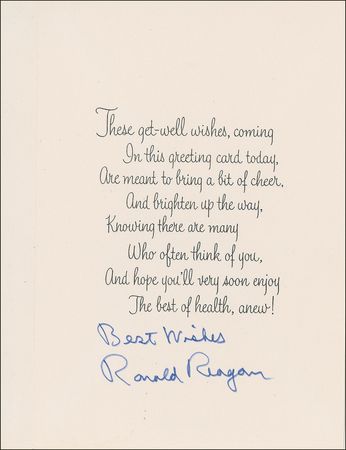 These get-well wishes, coming
In this greeting card today,
Are meant to bring a bit of cheer,
And brighten up the way,
Knowing there are many
Who often think of you,
And hope you'll very soon enjoy
The best of health, anew!
Best Wishes
Ronald Reagan